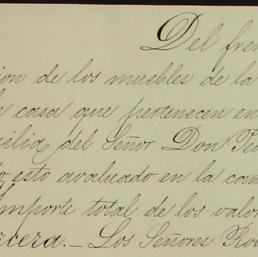 Del fren
ion de los muebles de la
casa que pertenecen en
ilia del Señor Don Pe
esto avaluado en la can
Importe total de los valo
rcera.— Los Señores Ro